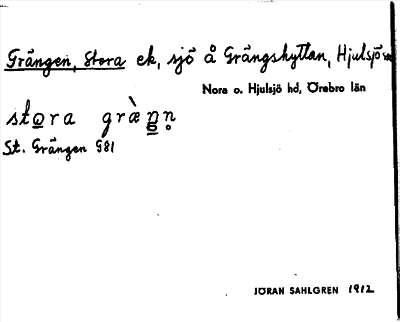 Grängen, Stora ek, sjö å Grängshyttan, Hjulsjö sn
Nora o. Hjulsjö hd, Örebro län
stora grὰŋṇ
St. Grängen G81
JÖRAN SAHLGREN 1912